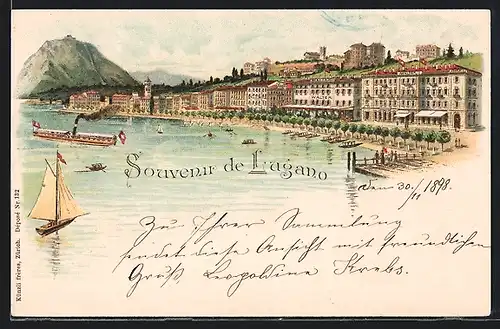 Souvenir de Lugano
den 30./11 1898.
Zu Ihrer Sammlung
sendet diese Ansicht mit freundlichem
Gruß, Leopoldine Krebs.
Künzli frères, Zürich. Déposé Nr. 132